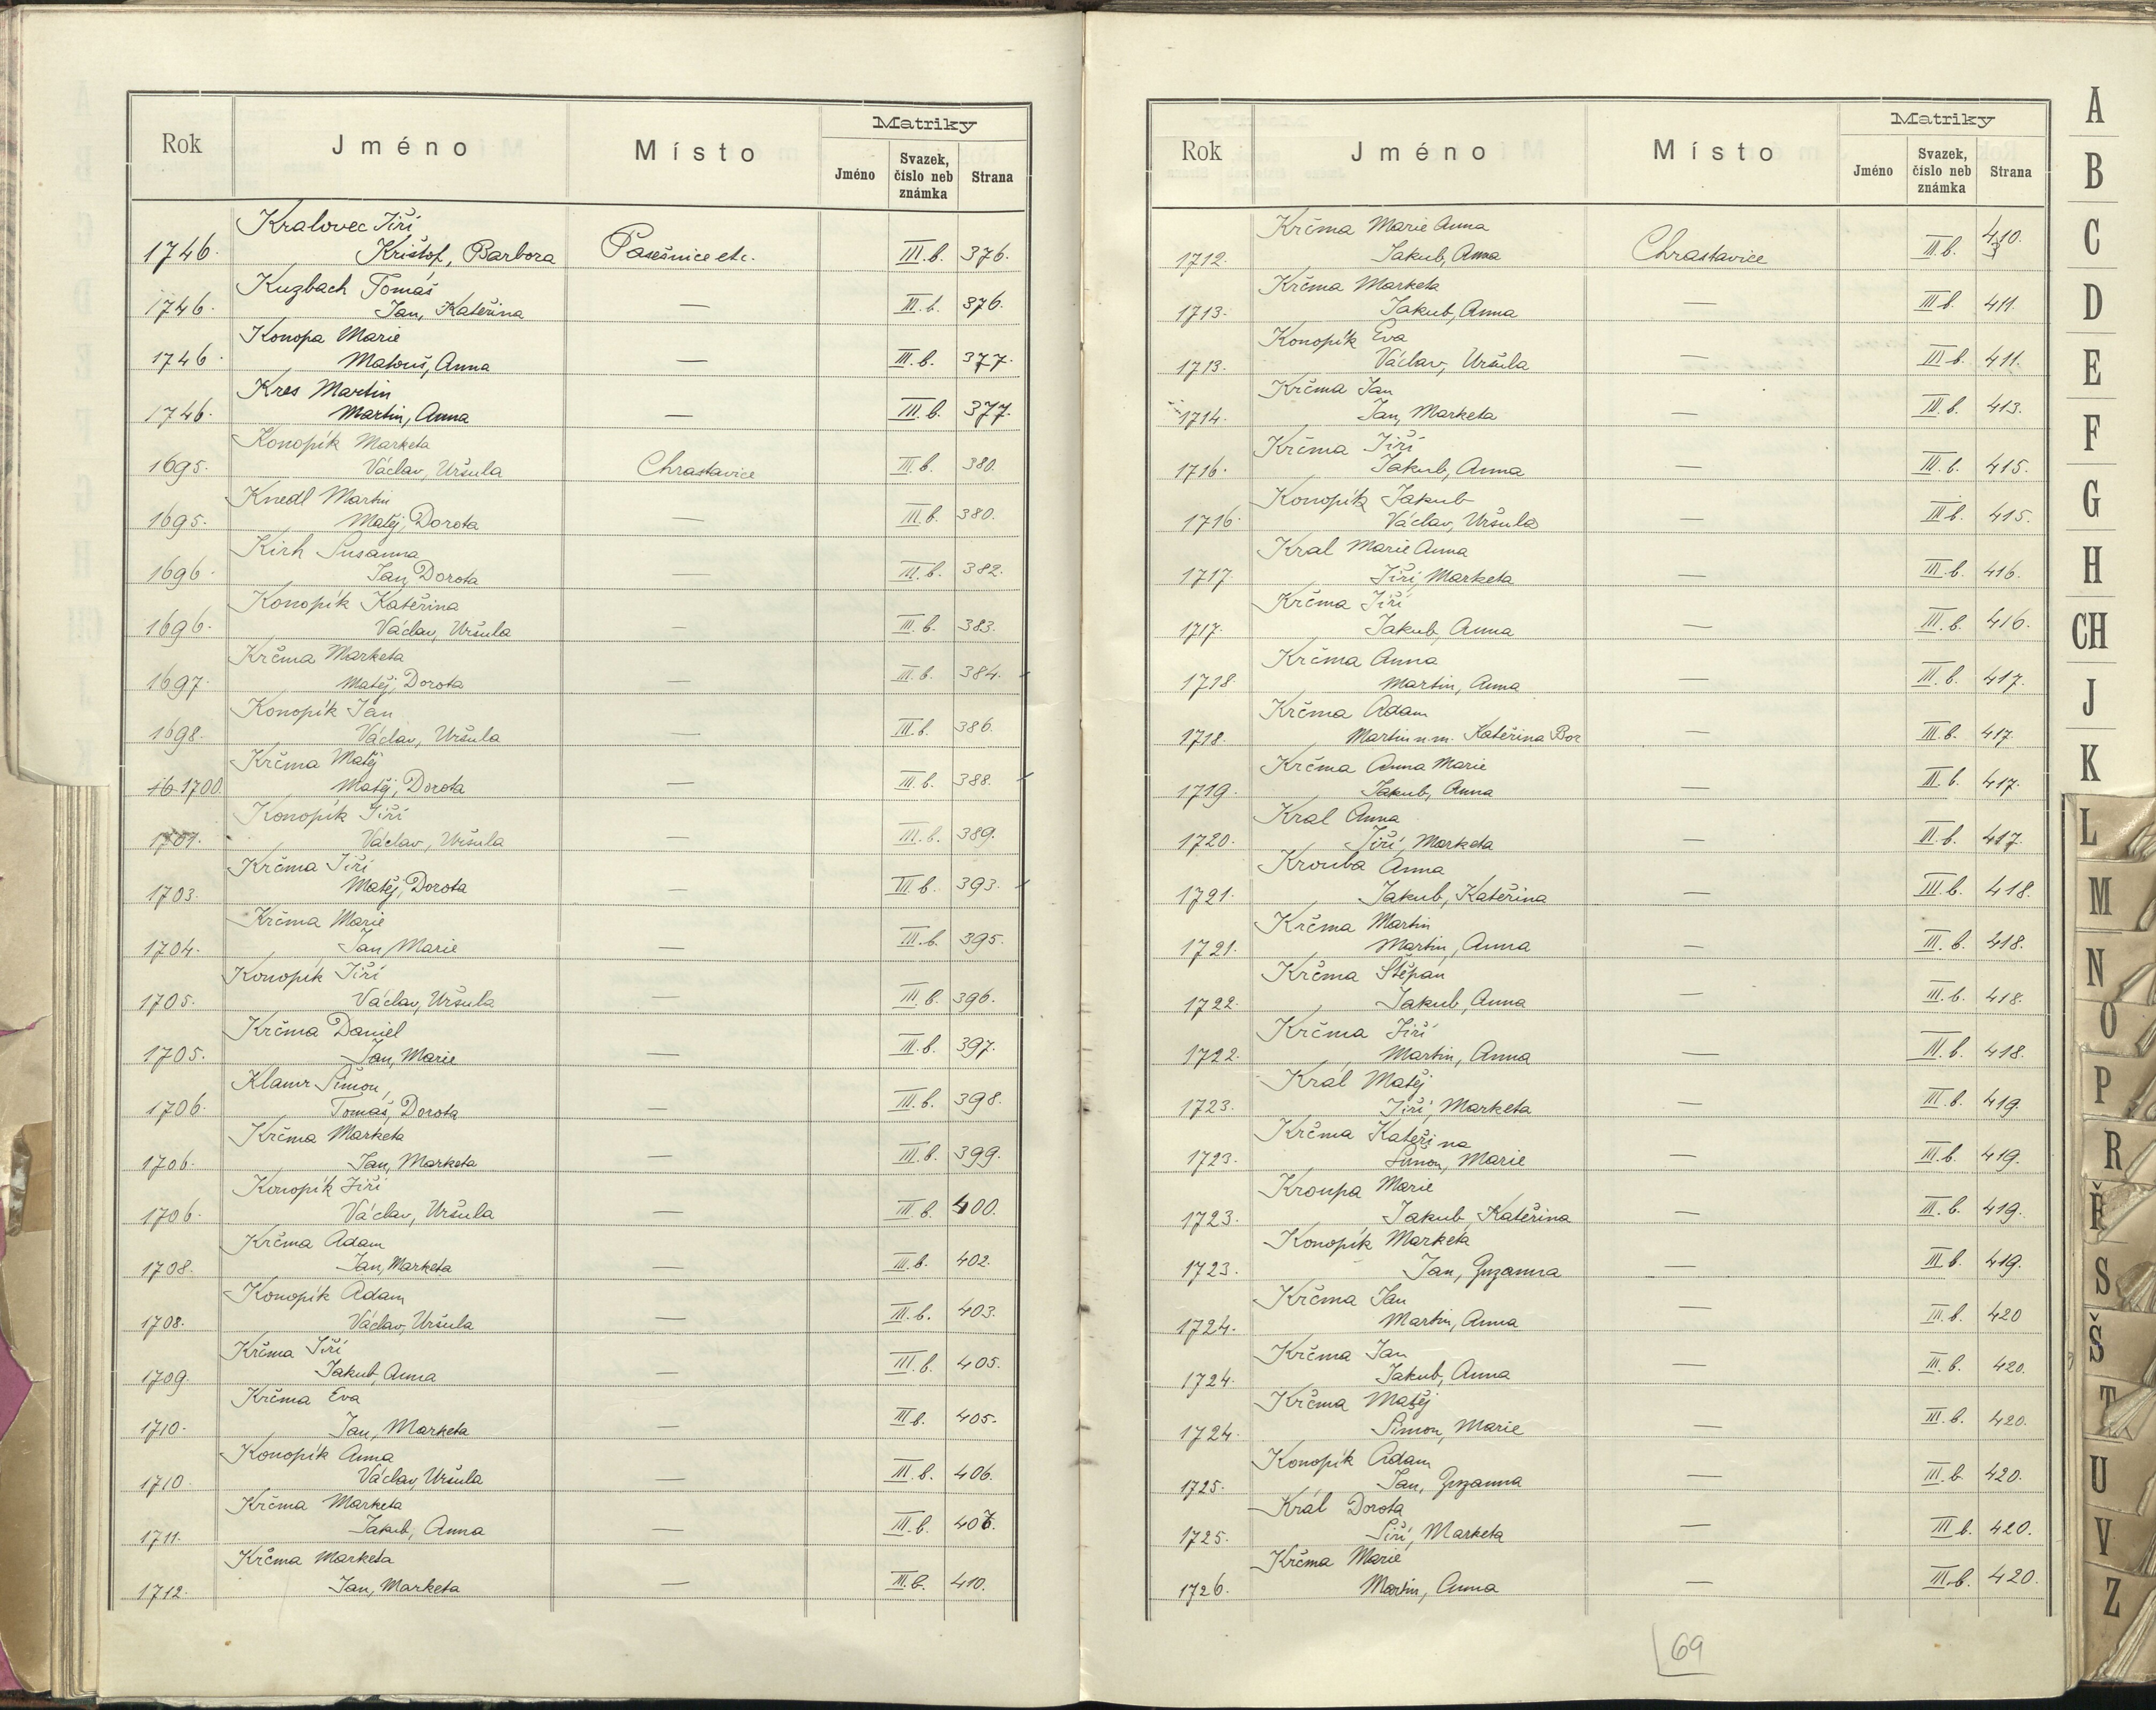 Rok Jméno Místo Matriky
Jméno Svazek, číslo neb známka Strana
Kralovec Jiří
1746. Krištof, Barbora Pasešnice etc. III.b. 376.
Kuzbach Tomáš
1746. Jan, Kateřina — III.b. 376.
Konopa Marie
1746. Matouš, Anna — III.b. 377.
Kres Martin
1746. Martin, Anna — III.b. 377.
Konopík Marketa
1695. Václav, Uršula Chrastavice III.b. 380.
Knedl Martin
1695. Matěj, Dorota — III.b. 380.
Kirh Susanna
1696. Jan, Dorota — III.b. 382.
Konopík Kateřina
1696. Václav, Uršula — III.b. 383.
Krčma Marketa
1697. Matěj, Dorota — III.b. 384.
Konopík Jan
1698. Václav, Uršula — III.b. 386.
Krčma Matěj
16 1700. Matěj, Dorota — III.b. 388.
Konopík Jiří
1701. Václav, Uršula — III.b. 389.
Krčma Jiří
1703. Matěj, Dorota — III.b. 393.
Krčma Marie
1704. Jan, Marie — III.b. 395.
Konopík Jiří
1705. Václav, Uršula — III.b. 396.
Krčma Daniel
1705. Jan, Marie — III.b. 397.
Klamr Šimon,
1706. Tomáš, Dorota — III.b. 398.
Krčma Marketa
1706. Jan, Marketa — III.b. 399.
Konopík Jiří
1706. Václav, Uršula — III.b. 400.
Krčma Adam
1708. Jan, Marketa — III.b. 402.
Konopík Adam
1708. Václav, Uršula — III.b. 403.
Krčma Jiří
1709. Jakub, Anna — III.b. 405.
Krčma Eva
1710. Jan, Marketa — III.b. 405.
Konopík Anna
1710. Václav, Uršula — III.b. 406.
Krčma Marketa
1711. Jakub, Anna — III.b.
Krčma Marketa
1712. Jan, Marketa — III.b. 410.
Rok Jméno Místo Matriky
Jméno Svazek, číslo neb známka Strana
Krčma Marie Anna
1712. Jakub, Anna Chrastavice III.b. 410.
Krčma Marketa
1713. Jakub, Anna — III.b. 411.
Konopík Eva
1713. Václav, Uršula — III.b. 411.
Krčma Jan
1714. Jan, Marketa — III.b. 413.
Krčma Jiří
1716. Jakub, Anna — III.b. 415.
Konopík Jakub
1716. Václav, Uršula — III.b. 415.
Kral Marie Anna
1717. Jiří, Marketa — III.b. 416.
Krčma Jiří
1717. Jakub, Anna — III.b. 416.
Krčma Anna
1718. Martin, Anna — III.b. 417.
Krčma Adam
1718. Martin n.m. Kateřina Bor — III.b. 417.
Krčma Anna Marie
1719. Jakub, Anna — III.b. 417.
Kral Anna
1720. Jiří, Marketa — III.b. 417.
Krouba Anna
1721. Jakub, Kateřina — III.b. 418.
Krčma Martin
1721. Martin, Anna — III.b. 418.
Krčma Štěpán
1722. Jakub, Anna — III.b. 418.
Krčma Jiří
1722. Martin, Anna — III.b. 418.
Král Matěj
1723. Jiří, Marketa — III.b. 419.
Krčma Kateřina
1723. Šimon, Marie — III.b. 419.
Kroupa Marie
1723. Jakub, Kateřina — III.b. 419.
Konopík Marketa
1723. Jan, Zuzanna — III.b. 419.
Krčma Jan
1724. Martin, Anna — III.b. 420
Krčma Jan
1724. Jakub, Anna — III.b. 420.
Krčma Matěj
1724. Šimon, Marie — III.b. 420.
Konopík Adam
1725. Jan, Zuzanna — III.b. 420.
Král Dorota
1725. Jiří, Marketa — III.b. 420.
Krčma Marie
1726. Martin, Anna — III.b. 420.
69
A
B
C
D
E
F
G
H
CH
J
K
L
M
N
O
P
R
Ř
S
Š
T
U
V
Z